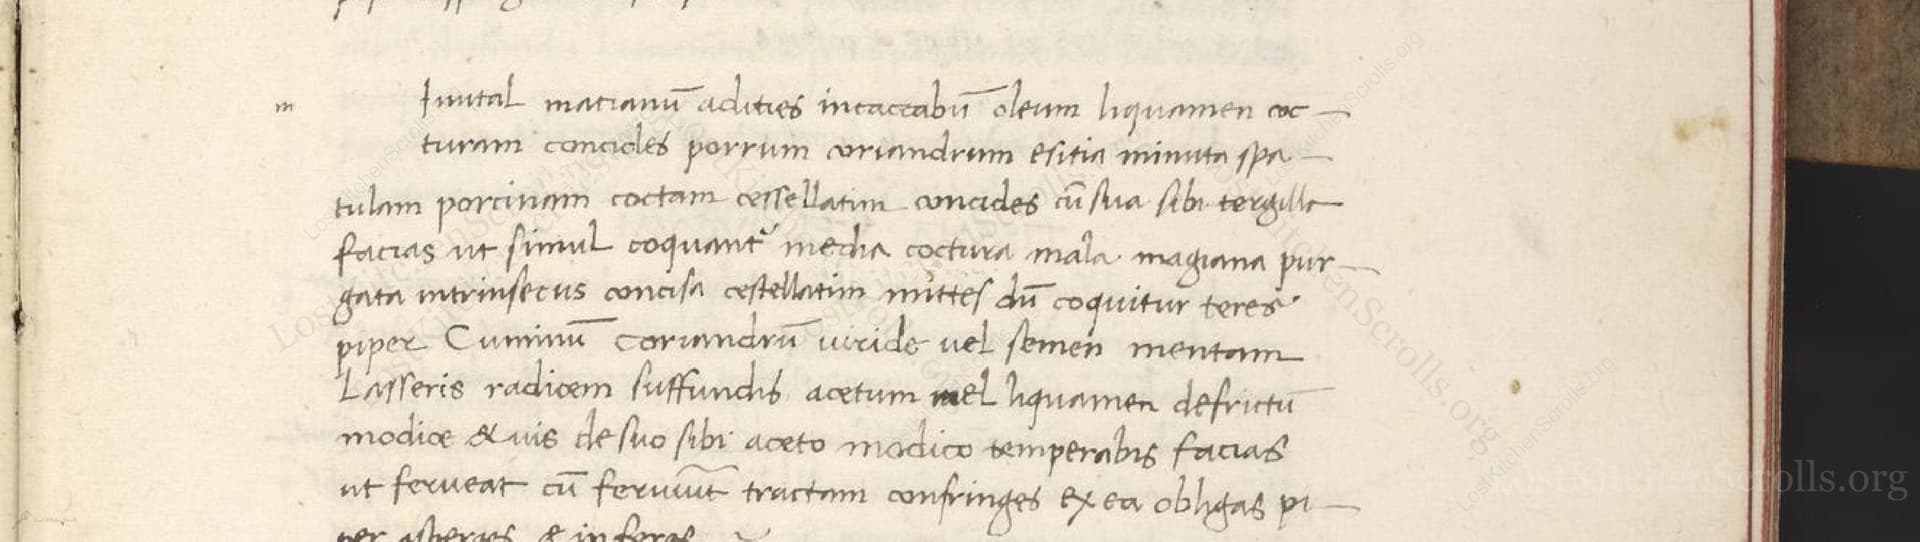 m Inutal matianū adities incaccabū oleum liquamen coc
turam concides porrum coriandrum esitia minuta spa
tulam porcinam coctam cessellatim concides cū sua sibi tergilla
facias ut simul coquant᷑ media coctura mala magiana pur
gata intrinsecus concisa cestellatim mittes dū coquitur teres
piper Cuminū coriandrū viride uel semen mentam
Lasseris radicem suffundis acetum mel liquamen defrictū
modice & uis de suo sibi aceto modico temperabis facias
ut ferveat cū feruūt tractam confringes ex ea obligas pi
per asperges & inferes
LostKitchenScrolls.org